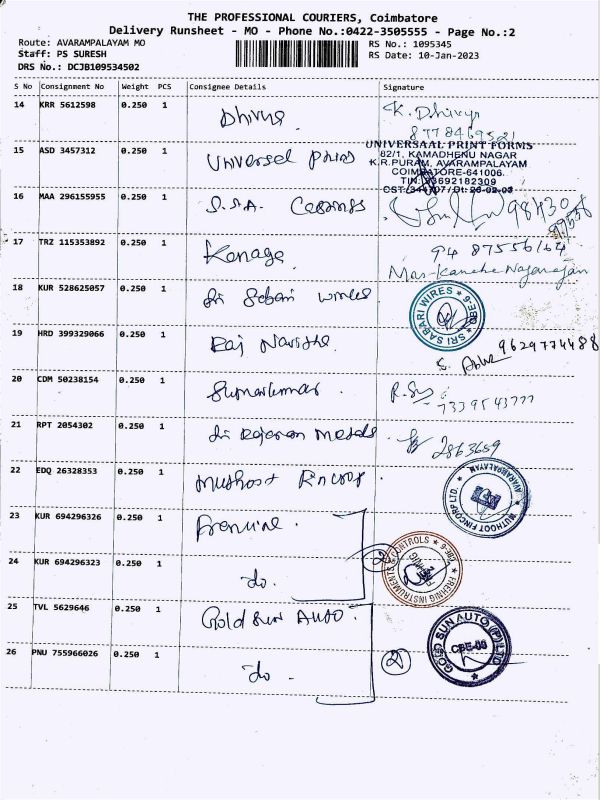 THE PROFESSIONAL COURIERS, Coimbatore
Delivery Runsheet - MO - Phone No.:0422-3505555 - Page No.:2
Route: AVARAMPALAYAM MO
RS No.: 1095345
Staff: PS SURESH
RS Date: 10-Jan-2023
DRS No.: DCJB109534502
S No Consignment No Weight PCS Consignee Details Signature
14 KRR 5612598 0.250 1 Dhivya. K. Dhivya
8778469521
15 ASD 3457312 0.250 1 Universal prints
UNIVERSAAL PRINT FORMS
82/1, KAMADHENU NAGAR
K.R.PURAM, AVARAMPALAYAM
COIMBATORE-641006.
TIN: 33692182309
16 MAA 296155955 0.250 1 S.S.A. 98430
17 TRZ 115353892 0.250 1 Kanaga. 94 87556164
18 KUR 528625057 0.250 1 Sri Sabari wires
SRI SABARI WIRES ★ CBE-6 ★
19 HRD 399329066 0.250 1 Raj 9629774488
20 CDM 50238154 0.250 1 Sumarkumar.
7339543777
21 RPT 2054302 0.250 1 Sri Rajaram Metals 2863659
22 EDQ 26328353 0.250 1 Muthoot Fincorp
MUTHOOT FINCORP LTD. AVARAMPALAYAM
23 KUR 694296326 0.250 1
24 KUR 694296323 0.250 1 do. 2
INSTRUMENTS CONTROLS CBE-6
25 TVL 5629646 0.250 1 Gold Sun Auto.
GOLD SUN AUTO (P) LTD CBE-06
26 PNU 755966026 0.250 1 do. 2